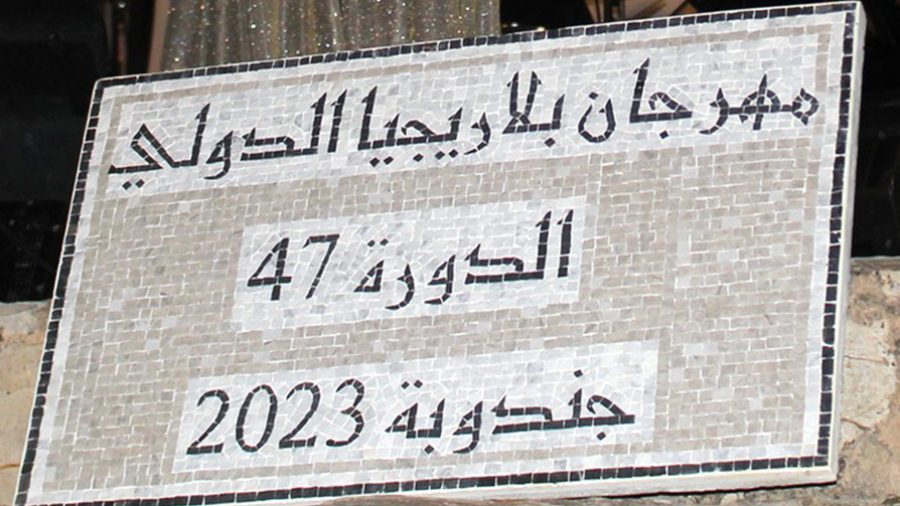 مهرجان بلاريجيا الدولي
الدورة 47
جندوبة 2023